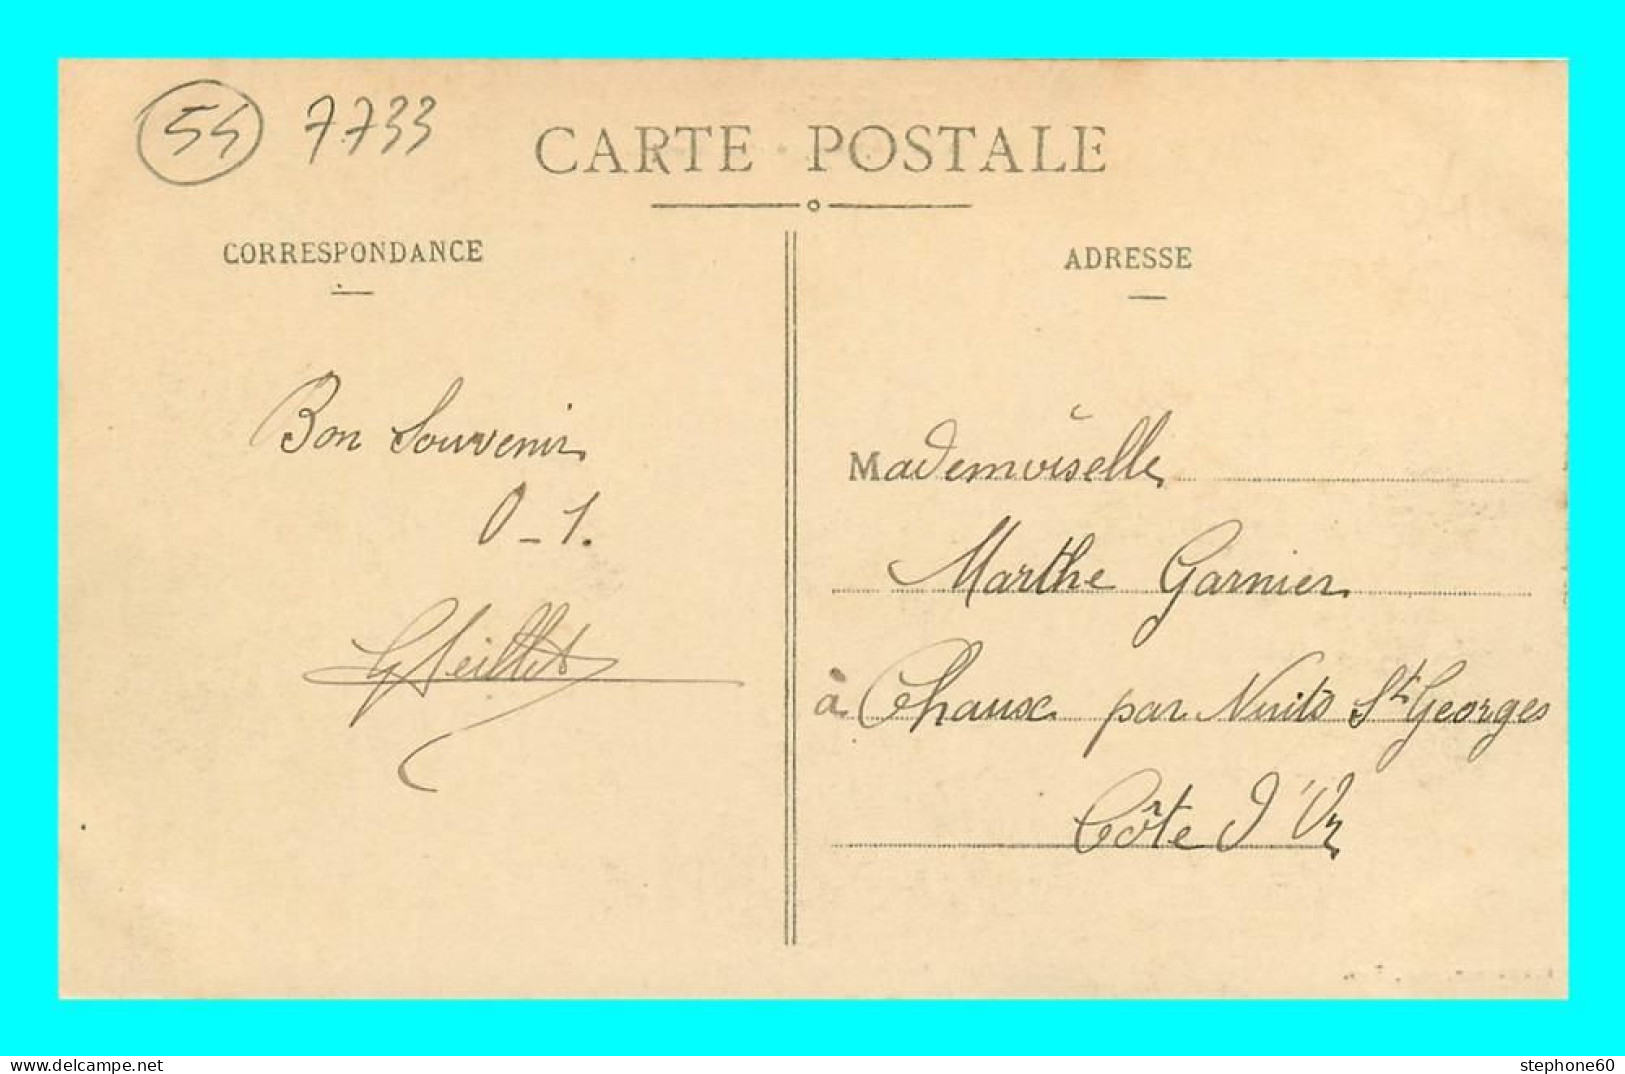 54 7733
CARTE POSTALE
CORRESPONDANCE
ADRESSE
Bon Souvenir
0 - 1.
Mademoiselle
Marthe Garnier
à Chaux par Nuits St Georges
Côte d'Or
www.delcampe.net
stephone60